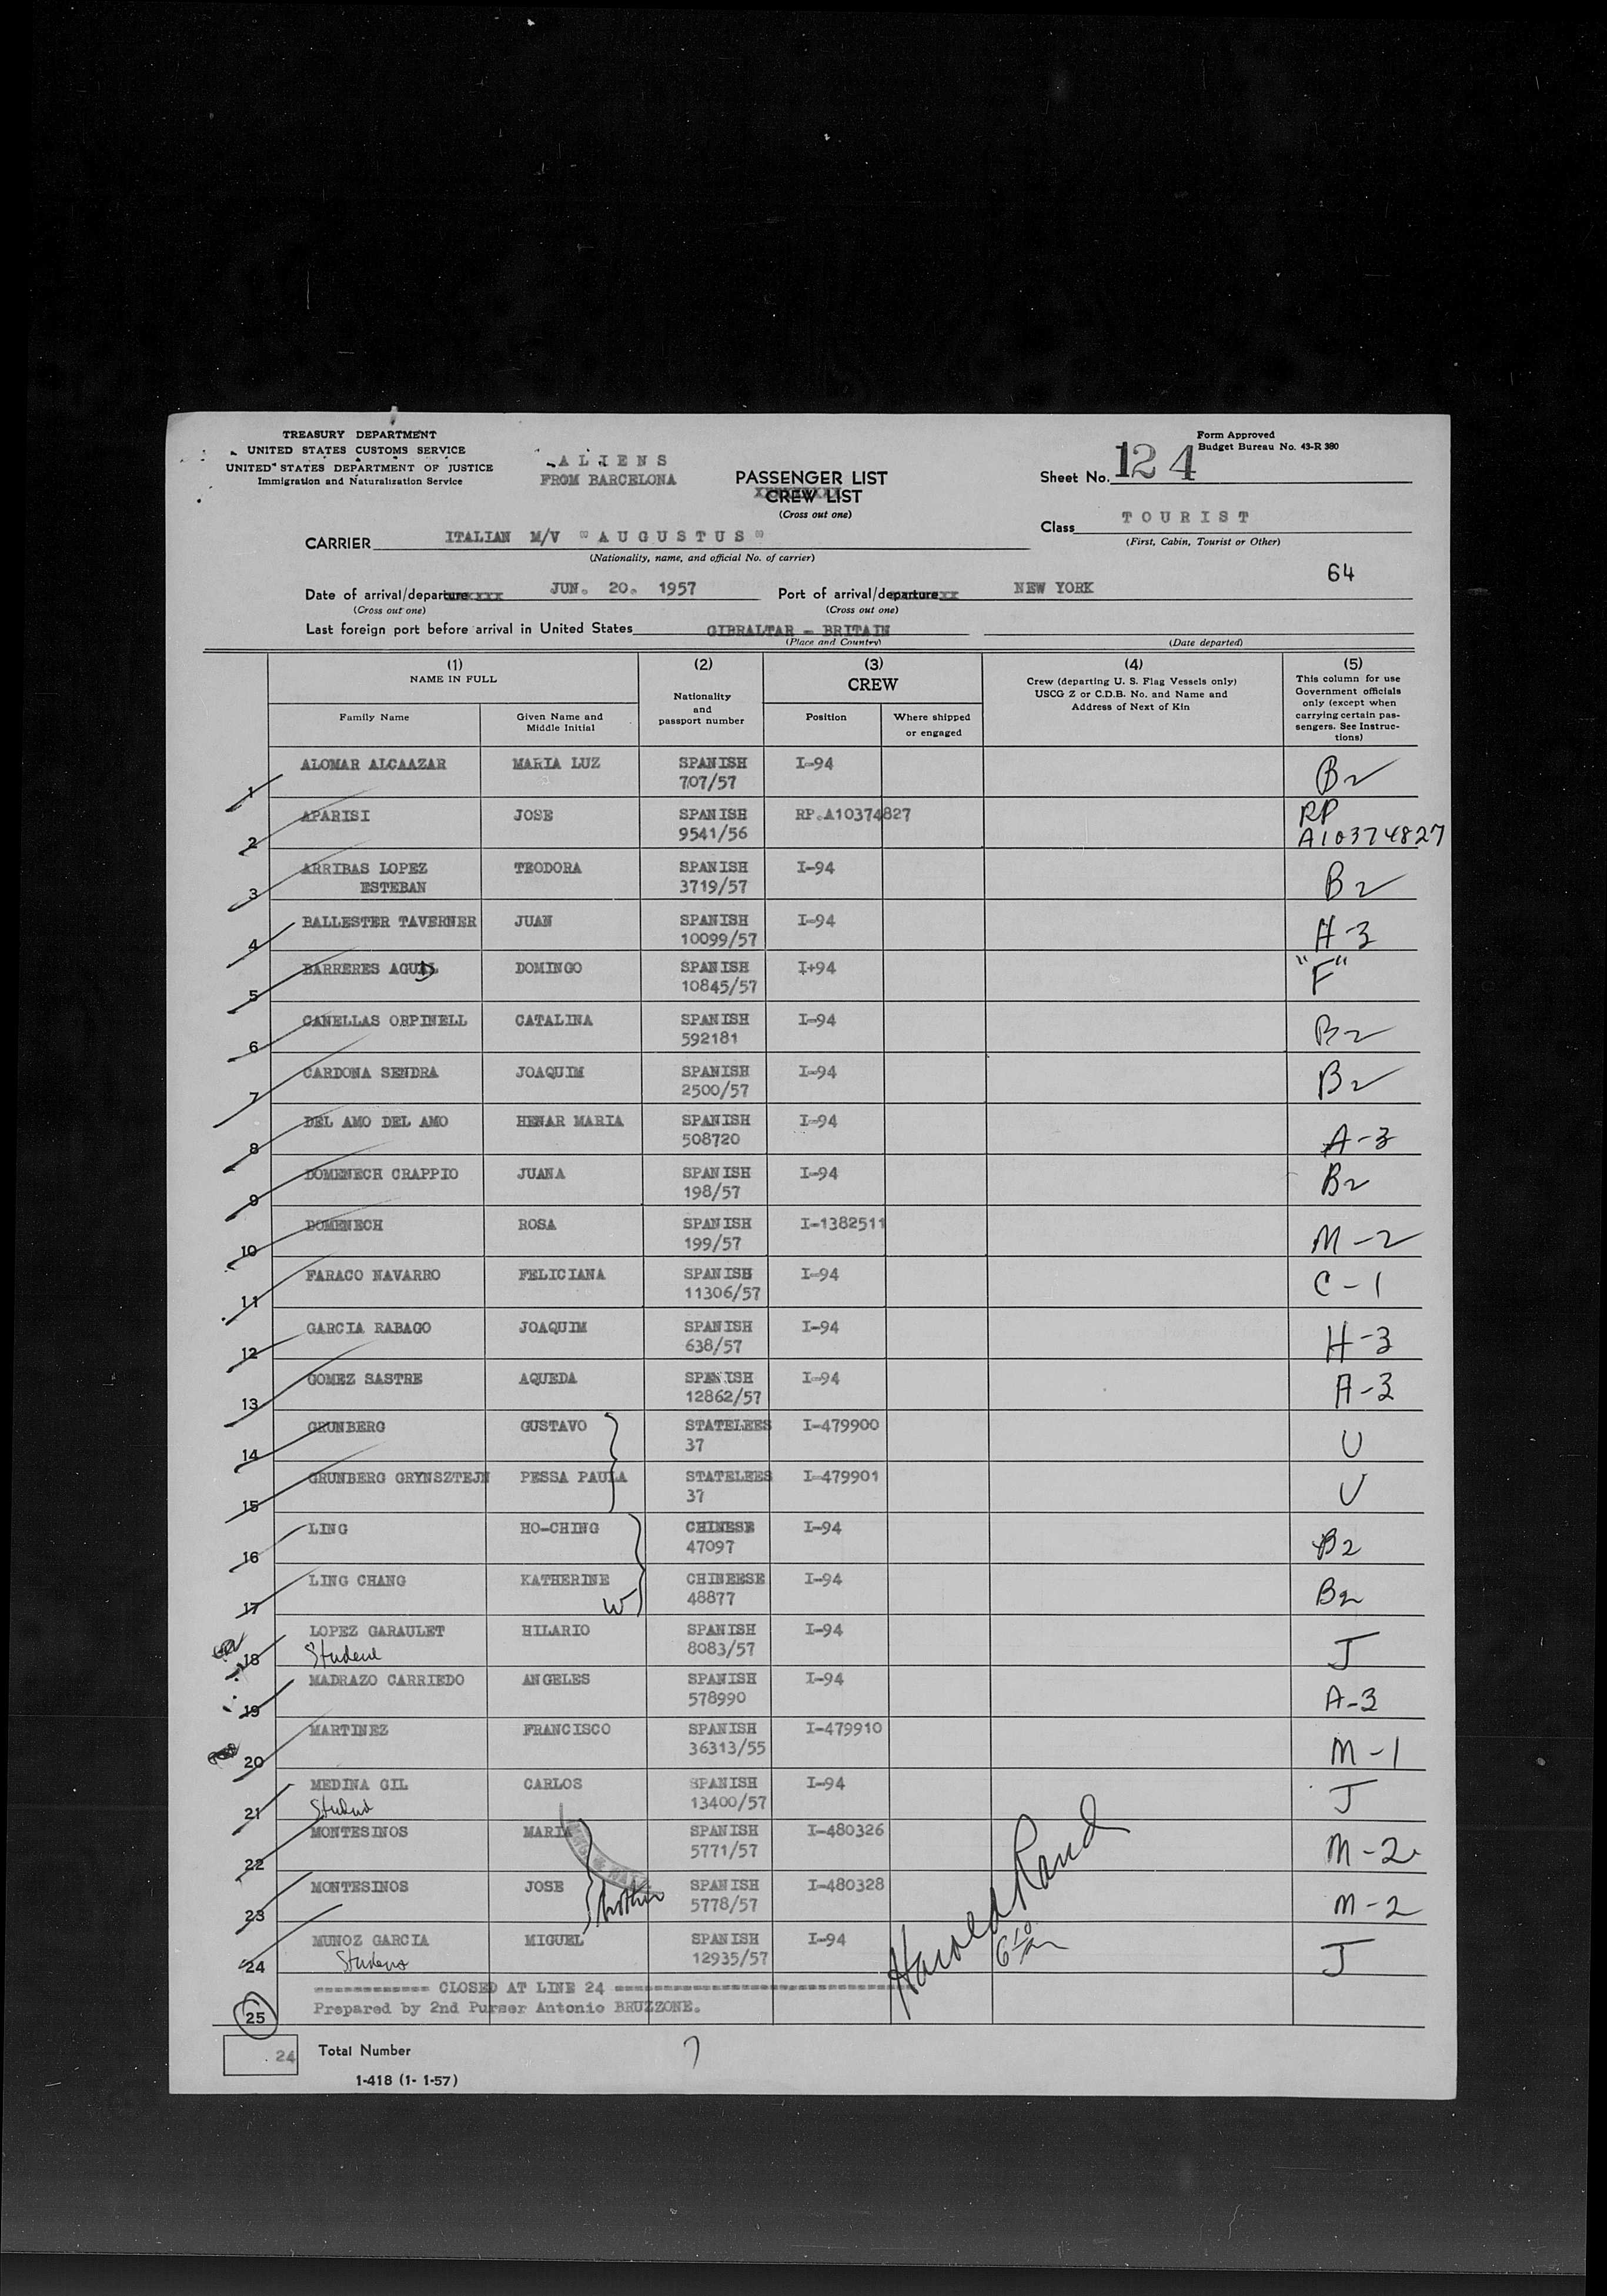 TREASURY DEPARTMENT
UNITED STATES CUSTOMS SERVICE
UNITED STATES DEPARTMENT OF JUSTICE
Immigration and Naturalization Service
ALIENS
FROM BARCELONA
PASSENGER LIST
CREW LIST
(Cross out one)
Form Approved
Budget Bureau No. 43-R 380
Sheet No. 124
Class TOURIST
(First, Cabin, Tourist or Other)
CARRIER ITALIAN M/V "AUGUSTUS"
(Nationality, name, and official No. of carrier)
64
Date of arrival/departure JUN. 20. 1957 Port of arrival/departure NEW YORK
(Cross out one) (Cross out one)
Last foreign port before arrival in United States GIBRALTAR - BRITAIN
(Place and Country) (Date departed)
(1) (2) (3) (4) (5)
NAME IN FULL
Family Name
Given Name and Middle Initial
Nationality and passport number
CREW
Position
Where shipped or engaged
Crew (departing U. S. Flag Vessels only)
USCG Z or C.D.B. No. and Name and
Address of Next of Kin
This column for use
Government officials
only (except when
carrying certain pas-
sengers. See Instruc-
tions)
1 ALOMAR ALCAAZAR MARIA LUZ SPANISH 707/57 I-94 B2
2 APARISI JOSE SPANISH 9541/56 RP.A10374827 RP A10374827
3 ARRIBAS LOPEZ ESTEBAN TEODORA SPANISH 3719/57 I-94 B2
4 BALLESTER TAVERNER JUAN SPANISH 10099/57 I-94 H-3
5 BARRERES DOMINGO SPANISH 10845/57 I+94 "F"
6 CANELLAS ORPINELL CATALINA SPANISH 592181 I-94 B2
7 CARDONA SENDRA JOAQUIM SPANISH 2500/57 I-94 B2
8 DEL AMO DEL AMO HENAR MARIA SPANISH 508720 I-94 A-3
9 DOMENECH CRAPPIO JUANA SPANISH 198/57 I-94 B2
10 DOMENECH ROSA SPANISH 199/57 I-1382511 M-2
11 FARACO NAVARRO FELICIANA SPANISH 11306/57 I-94 C-1
12 GARCIA RABAGO JOAQUIM SPANISH 638/57 I-94 H-3
13 GOMEZ SASTRE AQUEDA SPANISH 12862/57 I-94 A-3
14 GRUNBERG GUSTAVO STATELEES 37 I-479900 U
15 GRUNBERG GRYNSZTEJN PESSA PAULA STATELEES 37 I-479901 U
16 LING HO-CHING CHINESE 47097 I-94 B2
17 LING CHANG KATHERINE W CHINEESE 48877 I-94 B2
18 LOPEZ GARAULET HILARIO SPANISH 8083/57 I-94 J
Student
19 MADRAZO CARRIEDO ANGELES SPANISH 578990 I-94 A-3
20 MARTINEZ FRANCISCO SPANISH 36313/55 I-479910 M-1
21 MEDINA GIL CARLOS SPANISH 13400/57 I-94 J
Student
22 MONTESINOS MARIA SPANISH 5771/57 I-480326 M-2
23 MONTESINOS JOSE brother SPANISH 5778/57 I-480328 M-2
24 MUNOZ GARCIA MIGUEL SPANISH 12935/57 I-94 J
Student
Harold Rand
------------ CLOSED AT LINE 24 ------------------------------
25 Prepared by 2nd Purser Antonio BRUZZONE.
24 Total Number
7
1-418 (1- 1-57)